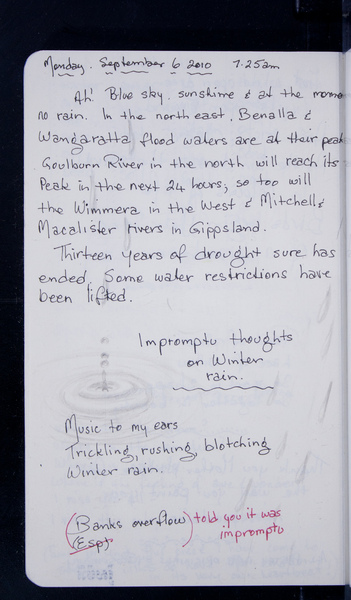 Monday, September 6 2010 7.25am
Ah! Blue sky, sunshine & at the mome
no rain. In the north east, Benalla &
Wangaratta flood waters are at their peak
Goulburn River in the north will reach its
Peak in the next 24 hours; so too will
the Wimmera in the West & Mitchell &
Macalister rivers in Gippsland.
Thirteen years of drought sure has
ended. Some water restrictions have
been lifted.
Impromptu thoughts
on Winter
rain.
Music to my ears
Trickling, rushing, blotching
Winter rain.
(Banks overflow) told you it was
(Esp) impromptu